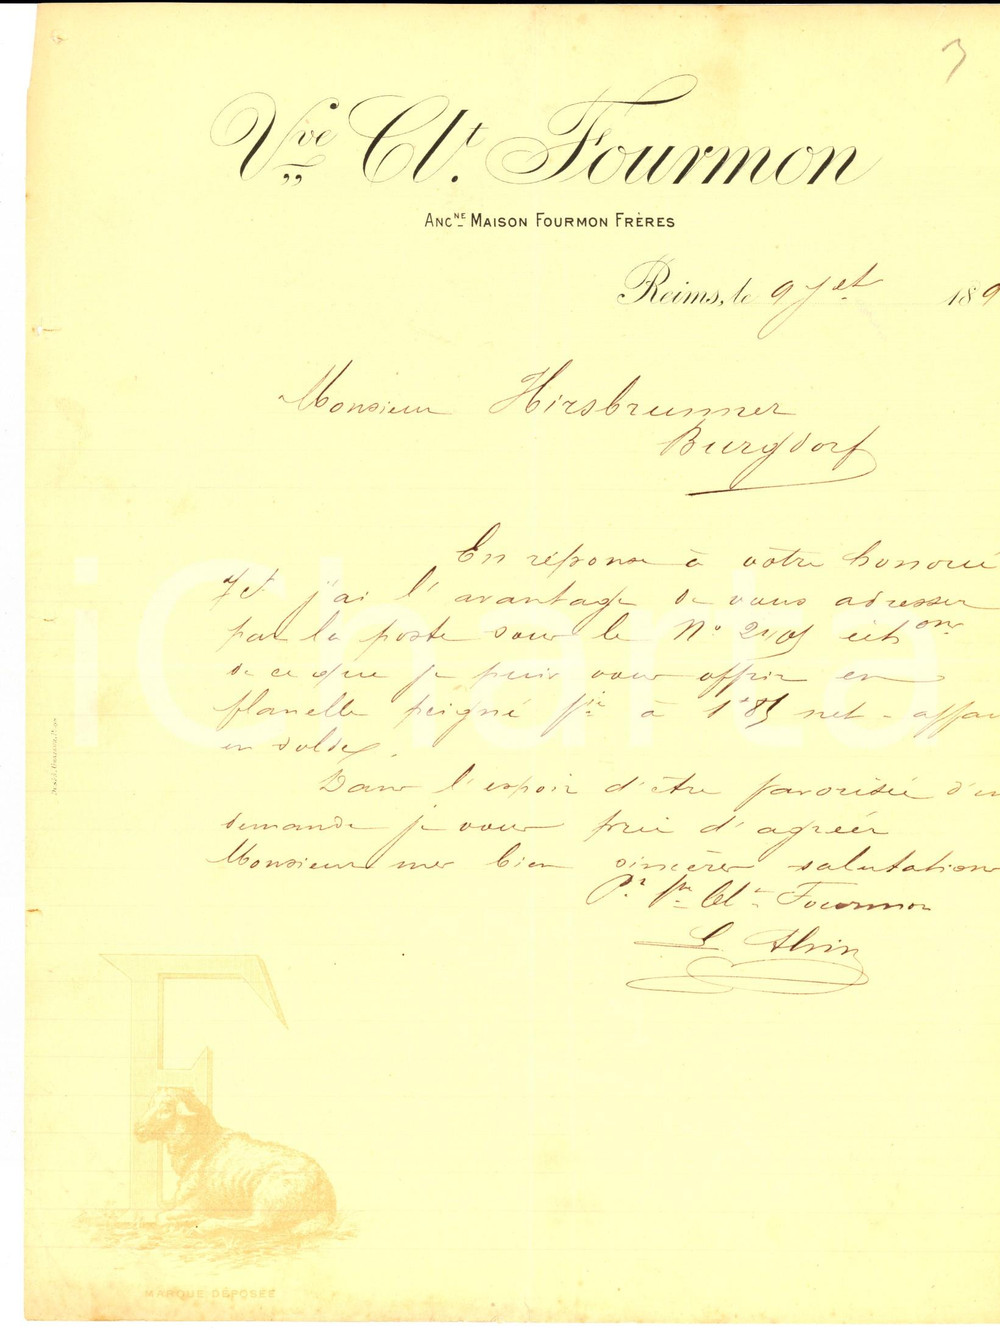 3
Vve Clt. Fourmon
Ancne Maison Fourmon Frères
Reims, le 9 Jet 189
Monsieur Hirsbrunner
Burgdorf
En réponse à votre honorée
7 ct j'ai l'avantage de vous adresser
par la poste sous le No échons
de ce que je puis vous offrir en
flanelle peigné à 1f85 net - affaire
en solde.
Dans l'espoir d'être favorisée d'une
demande je vous prie d'agréer
Monsieur mes bien sincères salutations
Pr Vve Clt Fourmon
MARQUE DÉPOSÉE
iCharta